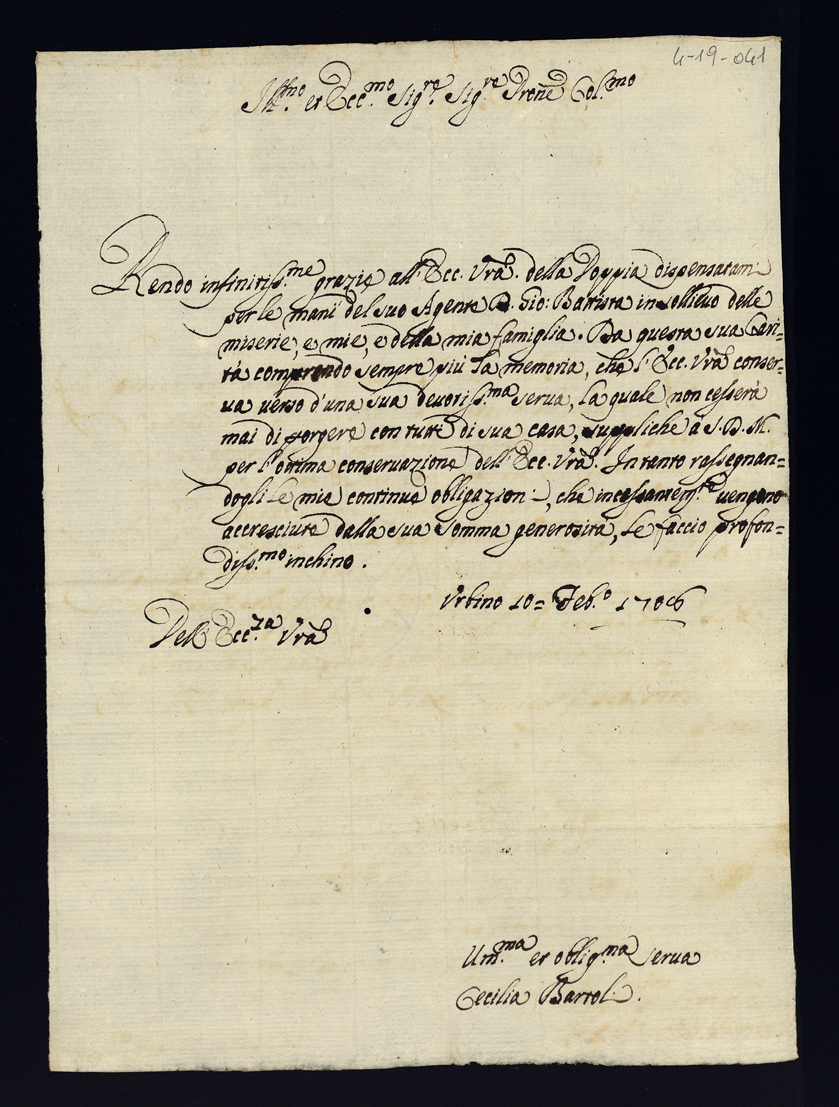 4-19-041
Ill.mo et Ecc.mo Sig.re Sig.re Prone Col.mo
Rendo infinitiss.me grazie all'Ecc. Vrã. della Doppia dispensatami
per le mani del suo Agente D. Gio: Battista in sollievo delle
miserie, e mie, e della mia famiglia. Da questa sua Cari=
tà comprendo sempre più la memoria, che l'Ecc. Vrã conser=
ua verso d'una sua devotiss.ma serva, la quale non cesserà
mai di porgere con tutti di sua casa, suppliche à S. D. M.
per l'ottima conservazione dell'Ecc. Vrã. Intanto rassegnan=
dogli le mie continue obligazioni, che incessantem.te uengono
accresciute dalla sua somma generosità, le faccio profon=
diss.mo inchino.
Urbino 10= Feb.o 1706
Dell'Ecc.za Vrã
Um.ma et oblig.ma Serva
Cecilia Bartoli.